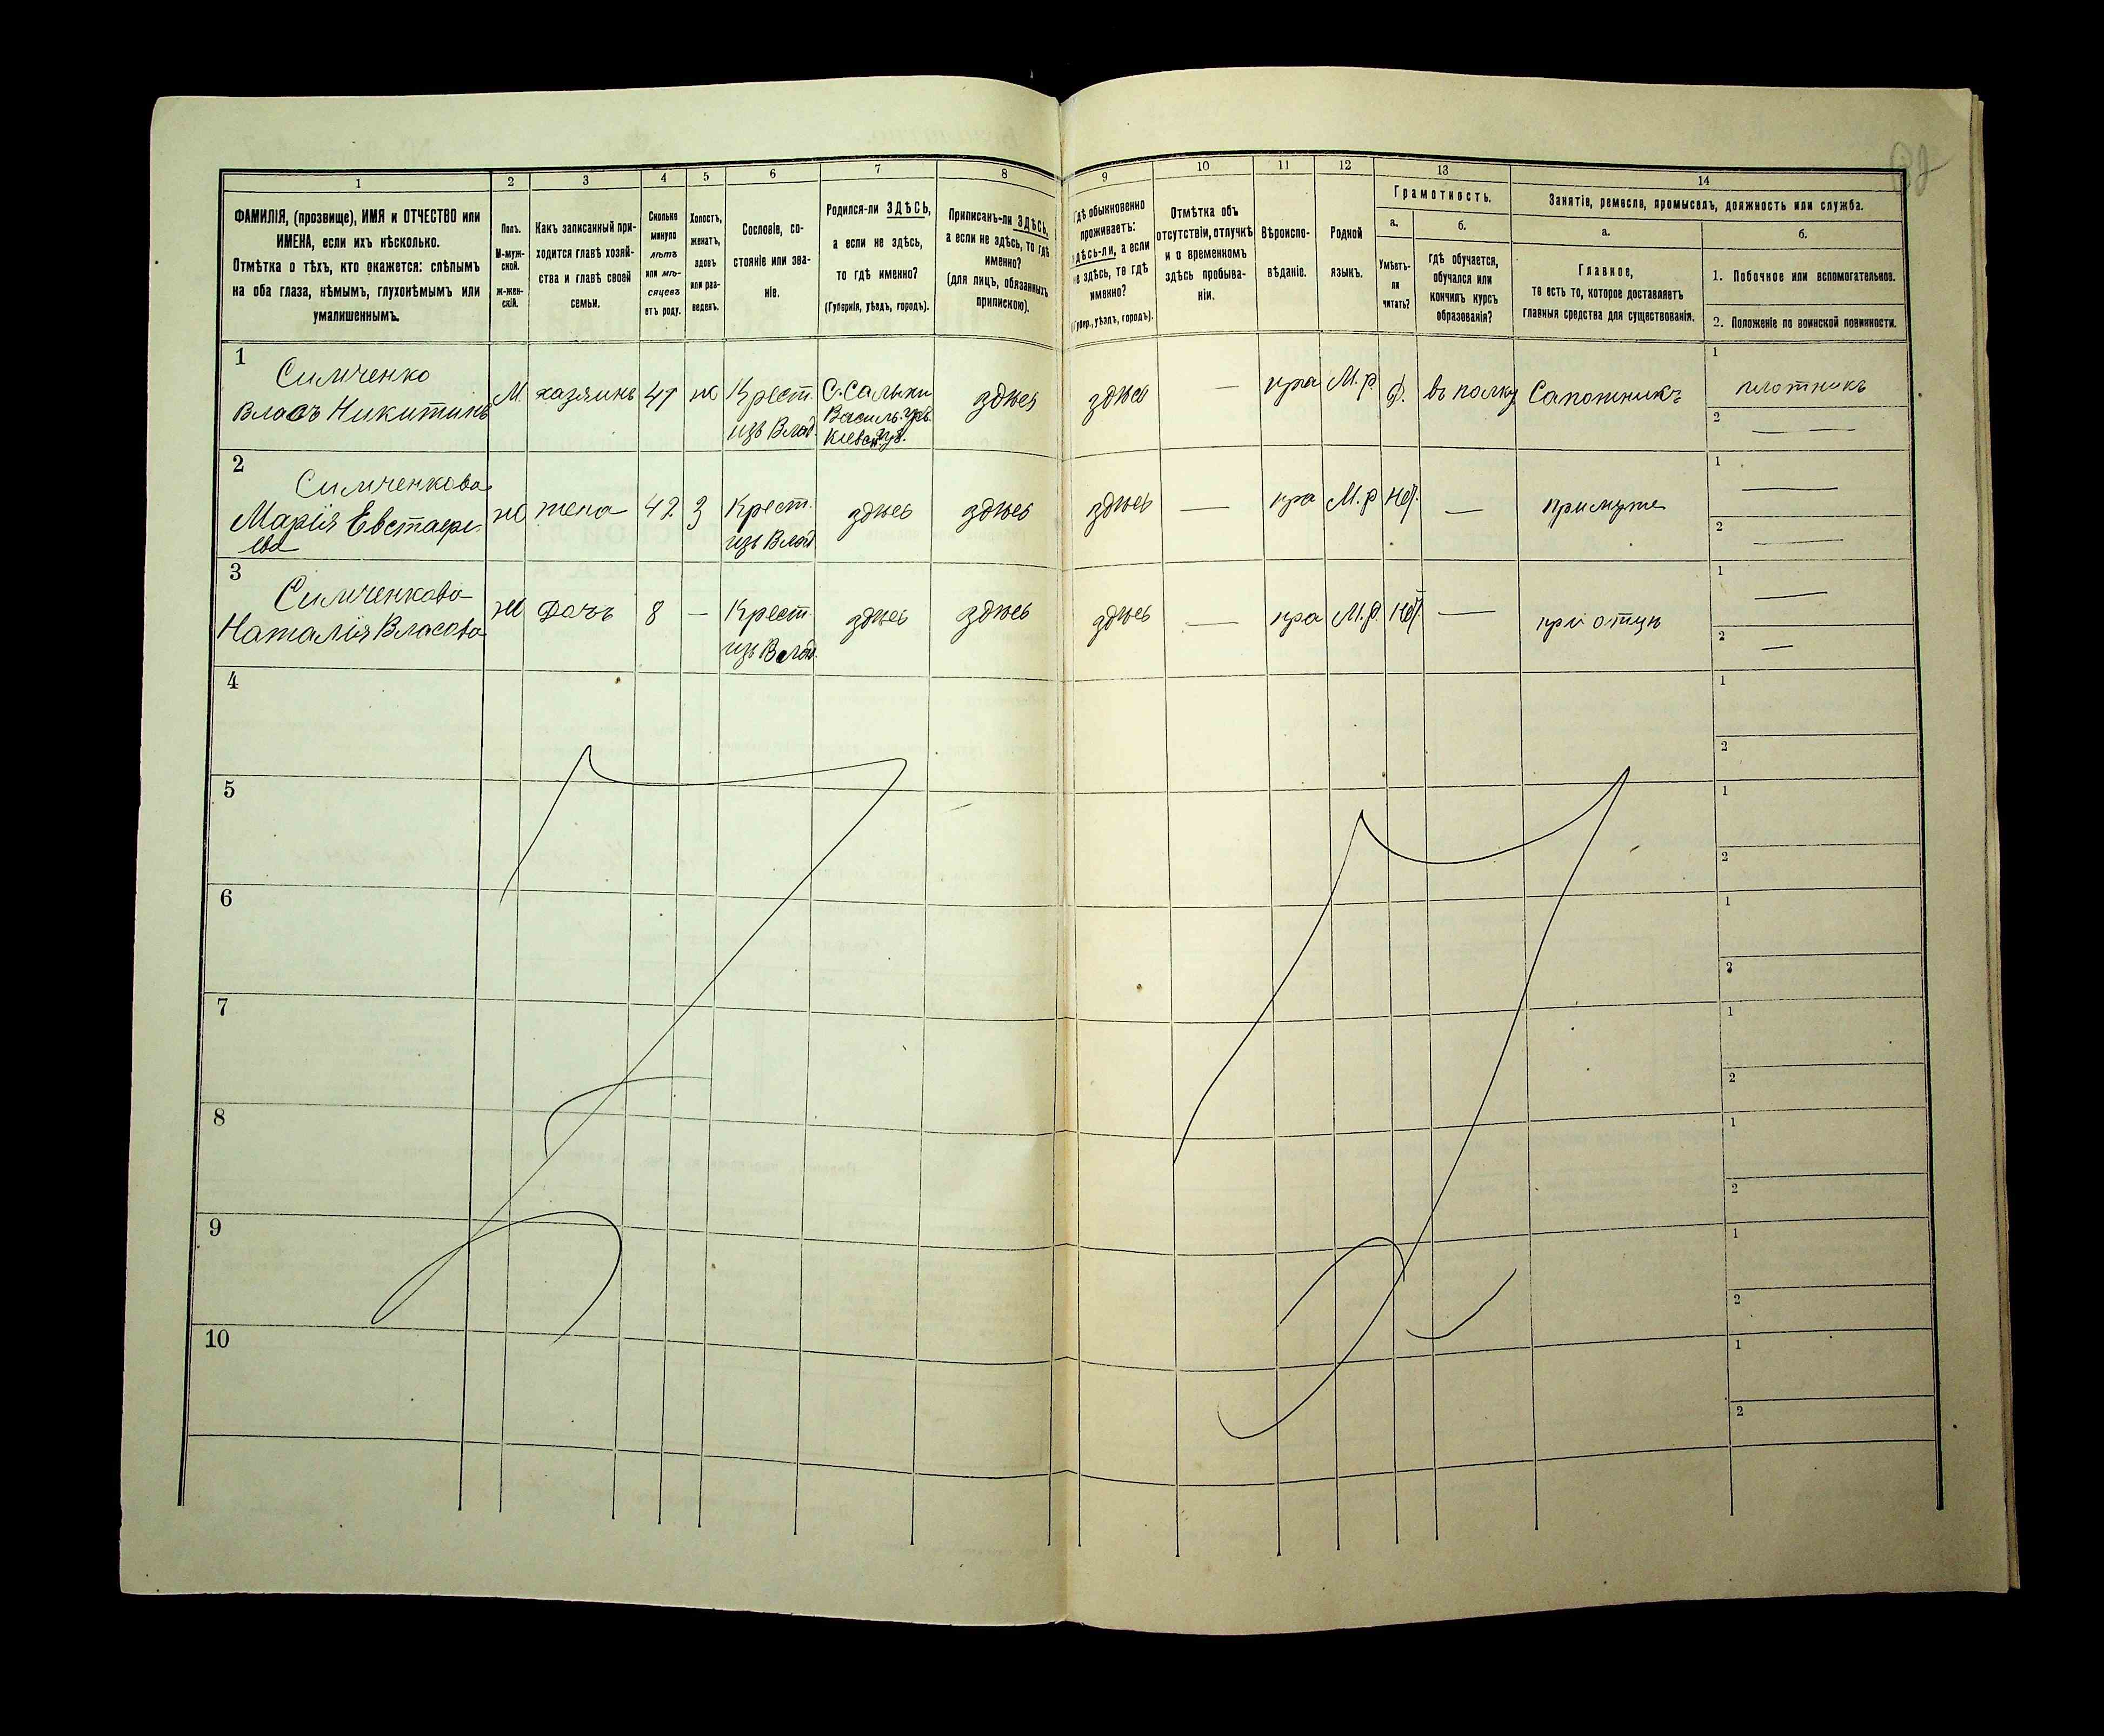 1
2
3
4
5
6
7
8
9
10
11
12
13
14
ФАМИЛІЯ, (прозвище), ИМЯ и ОТЧЕСТВО или
ИМЕНА, если ихъ нѣсколько.
Отмѣтка о тѣхъ, кто окажется: слѣпымъ
на оба глаза, нѣмымъ, глухонѣмымъ или
умалишеннымъ.
Полъ.
М-муж-
ской.
ж-жен-
скій.
Какъ записанный при-
ходится главѣ хозяй-
ства и главѣ своей
семьи.
Сколько
минуло
лѣтъ
или мѣ-
сяцевъ
отъ роду.
Холостъ,
женатъ,
вдовъ
или раз-
веденъ.
Сословіе, со-
стояніе или зва-
ніе.
Родился-ли ЗДѢСЬ,
а если не здѣсь,
то гдѣ именно?
(Губернія, уѣздъ, городъ).
Приписанъ-ли ЗДѢСЬ,
а если не здѣсь, то гдѣ
именно?
(для лицъ, обязанныхъ
припискою).
Гдѣ обыкновенно
проживаетъ:
здѣсь-ли, а если
не здѣсь, то гдѣ
именно?
(Губер., уѣздъ, городъ).
Отмѣтка объ
отсутствіи, отлучкѣ
и о временномъ
здѣсь пребыва-
ніи.
Вѣроиспо-
вѣданіе.
Родной
языкъ.
Грамотность.
а.
Умѣетъ-
ли
читать?
б.
гдѣ обучается,
обучался или
кончилъ курсъ
образованія?
Занятіе, ремесло, промыселъ, должность или служба.
а.
Главное,
то есть то, которое доставляетъ
главныя средства для существованія.
б.
1. Побочное или вспомогательное.
2. Положеніе по воинской повинности.
1
Симченко
Власъ Никитинъ
М.
хазяинъ
47
Крест.
изъ Влад.
С. Салыхи
Василь. уѣз.
Кіевск. губ.
здѣсь
здѣсь
—
пра
М. р.
Д.
въ полку
Сапожникъ
1
плотникъ
2
— —
2
Симченкова
Марія Евстафі-
ева
ж
жена
42
З
Крест.
изъ Влад.
здѣсь
здѣсь
здѣсь
—
пра
М. р
Нет.
—
при муже
1
—
2
—
3
Симченкова
Наталія Власова
ж
Дочь
8
—
Крест.
изъ Влад.
здѣсь
здѣсь
здѣсь
—
пра
М. р
Нет.
—
при отцѣ
1
—
2
—
4
1
2
5
1
2
6
1
2
7
1
2
8
1
2
9
1
2
10
1
2